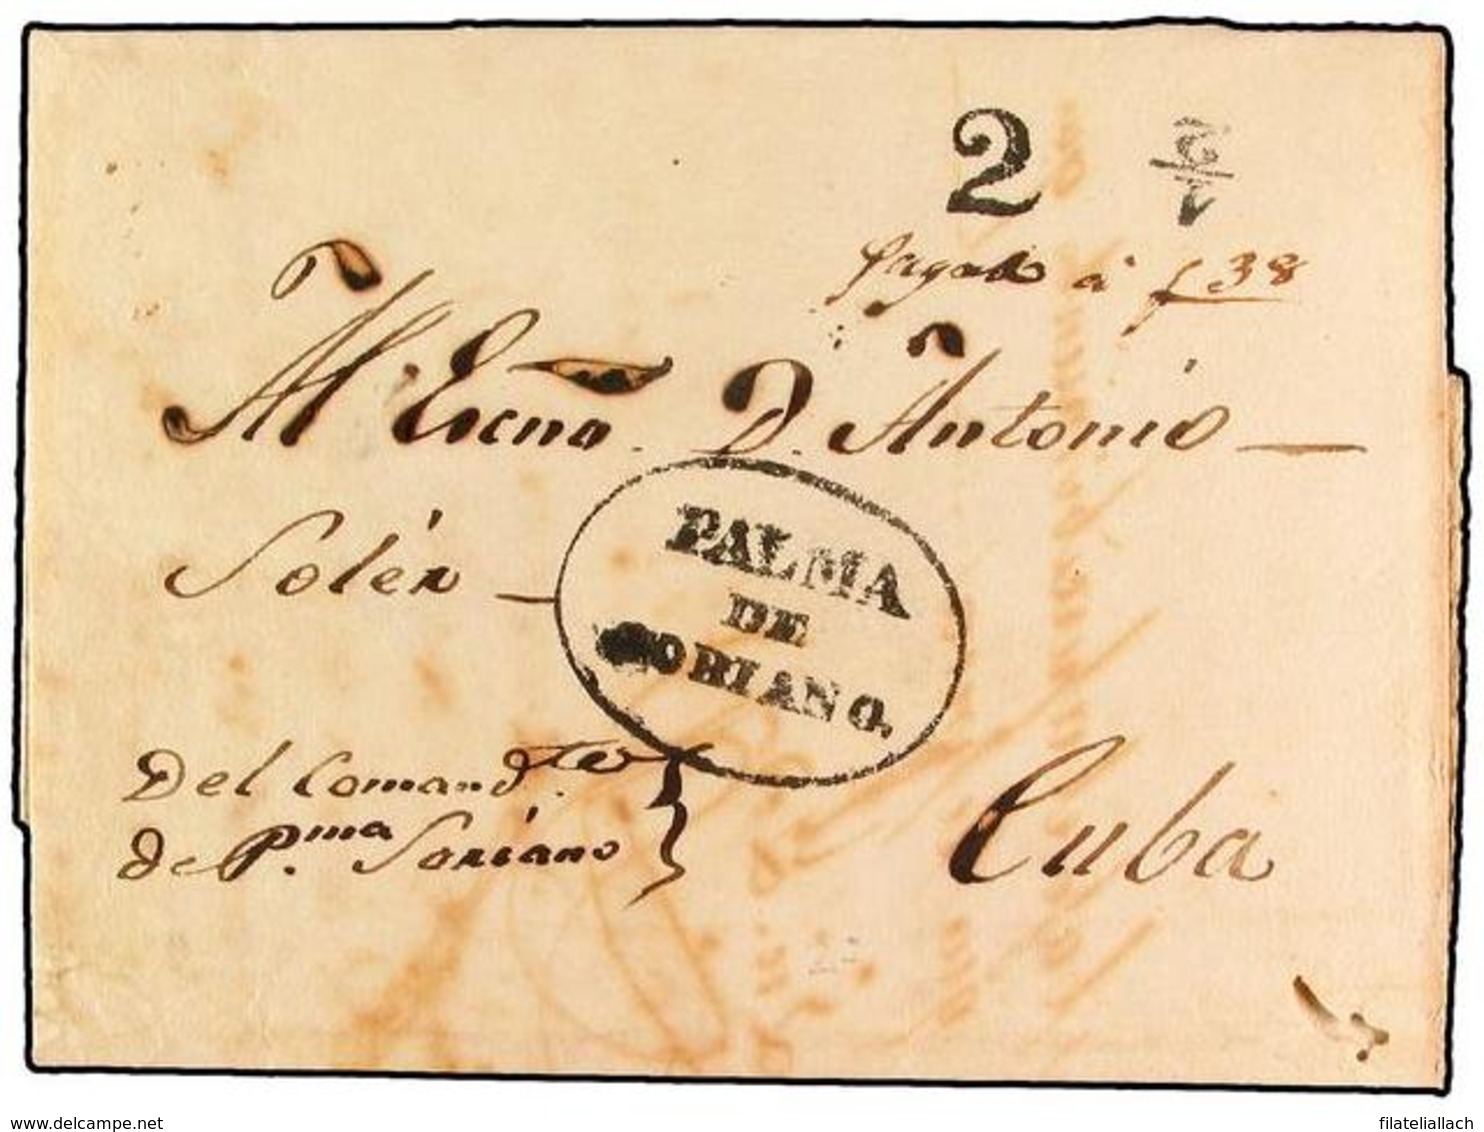 2 2/1
pagado á f 38
Al Escmo. D. Antonio —
Solér —
PALMA
DE
SORIANO.
Del Comandte
de P.ma Soriano
Cuba
www.delcampe.net
filateliallach